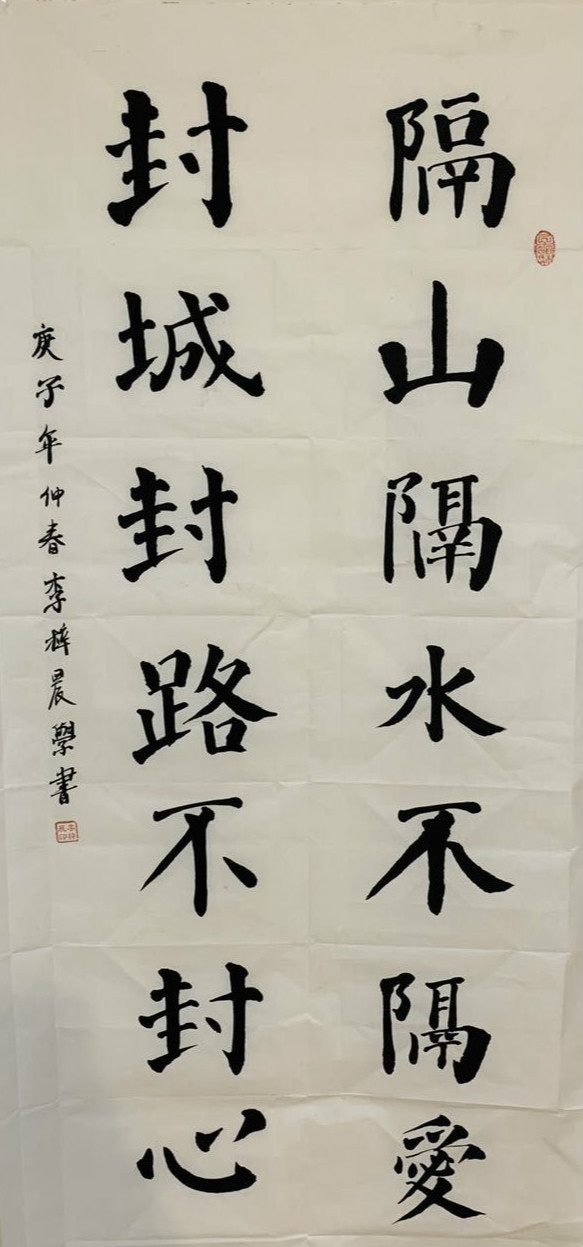 隔山隔水不隔愛
封城封路不封心
庚子年仲春李梓晨學書